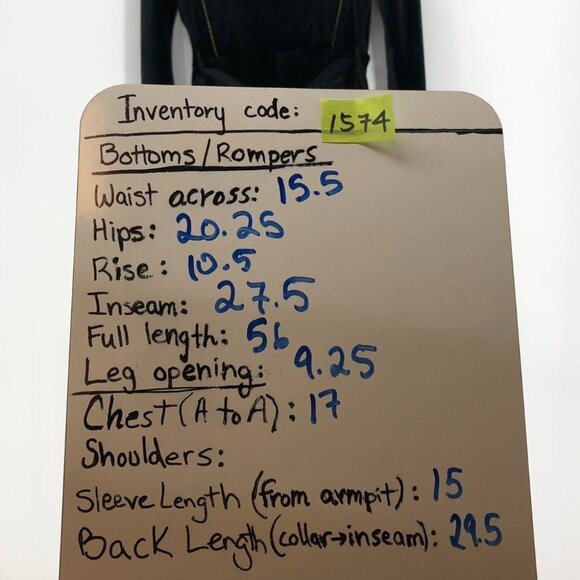 Inventory code: 1574
Bottoms/Rompers
Waist across: 15.5
Hips: 20.25
Rise: 10.5
Inseam: 27.5
Full length: 56
Leg opening: 9.25
Chest (A to A): 17
Shoulders:
Sleeve Length (from armpit): 15
Back Length (collar→inseam): 29.5